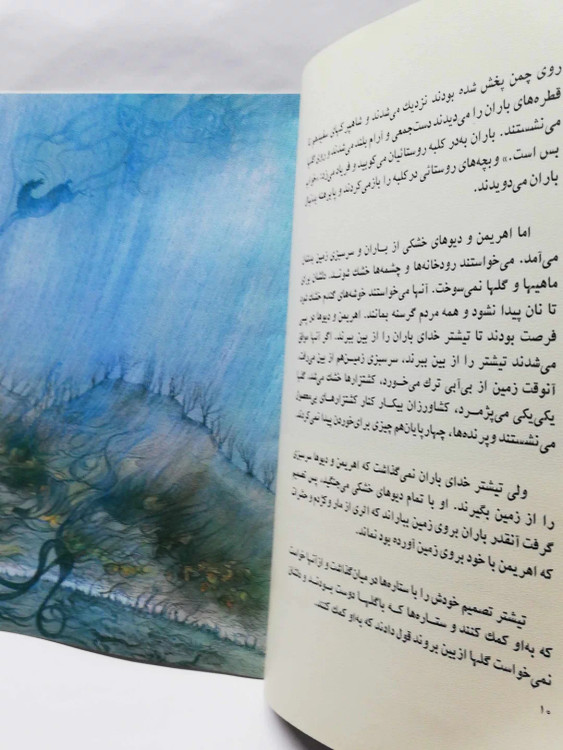 روی چمن پخش شده بودند نزدیك می‌شدند و شاهپر کهای سفیدهم تا
قطره‌های باران را می‌دیدند دست‌جمعی و آرام بلند می‌شدند و روی گلها
می‌نشستند. باران به‌در کلبه روستائیان می‌کوبید و فریاد می‌زد: «خواب
بس است.» و بچه‌های روستائی درکلبه را بازمی‌کردند و پابرهنه بدنبال
باران می‌دویدند.
اما اهریمن و دیوهای خشکی از باران و سرسبزی زمین بدشان
می‌آمد. می‌خواستند رودخانه‌ها و چشمه‌ها خشك شوند، دلشان برای
ماهیها و گلها نمی‌سوخت. آنها می‌خواستند خوشه‌های گندم خشك شود
تا نان پیدا نشود و همه مردم گرسنه بمانند. اهریمن و دیوها در پی
فرصت بودند تا تیشتر خدای باران را از بین ببرند. اگر آنها موفق
می‌شدند تیشتر را از بین ببرند، سرسبزی زمین‌هم از بین می‌رفت.
آنوقت زمین از بی‌آبی ترك می‌خورد، کشتزارها خشك می‌شد، گلها
یکی‌یکی می‌پژمرد، کشاورزان بیکار کنار کشتزارهای بی‌محصول
می‌نشستند وپرنده‌ها، چهارپایان‌هم چیزی برای‌خوردن پیدا نمی‌کردند.
ولی تیشتر خدای باران نمی‌گذاشت که اهریمن و دیوها سرسبزی
را از زمین بگیرند. او با تمام دیوهای خشکی می‌جنگید، پس تصمیم
گرفت آنقدر باران بروی زمین بباراند که اثری از مار و کژدم و حشرات
که اهریمن با خود بروی زمین آورده بود نماند.
تیشتر تصمیم خودش را با ستاره‌ها در میان‌گذاشت و از آنها خواست
که به‌او کمك کنند و ستاره‌ها کـه باگلهـا دوست بودنـد و دلشان
نمی‌خواست گلها ازبین بروند قول دادند که به‌او کمك کنند.
۱۰